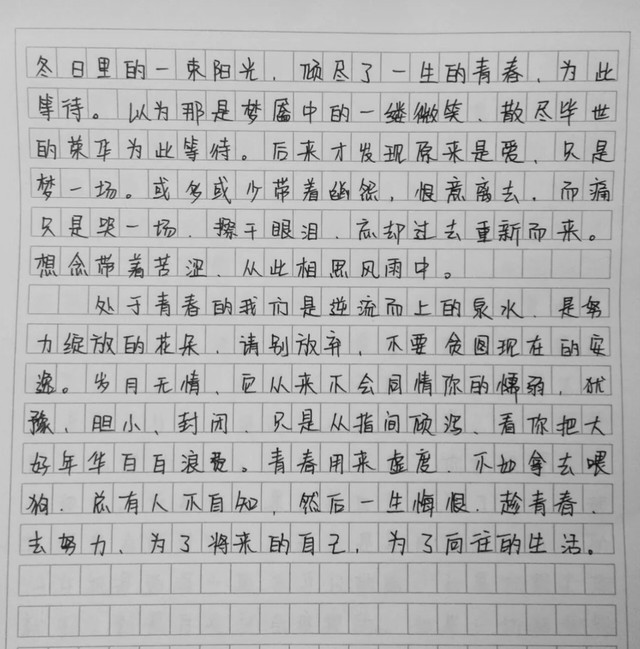 冬日里的一束阳光，倾尽了一生的青春，为此
等待。以为那是梦魇中的一缕微笑，散尽毕世
的荣华为此等待。后来才发现原来是爱，只是
梦一场。或多或少带着幽怨，恨意离去，而痛
只是哭一场，擦干眼泪，忘却过去重新而来。
想念带着苦涩，从此相思风雨中。
处于青春的我们是逆流而上的泉水，是努
力绽放的花朵，请别放弃，不要贪图现在的安
逸。岁月无情，它从来不会同情你的懦弱，犹
豫、胆小、封闭，只是从指间倾泻，看你把大
好年华百百浪费。青春用来虚度，不如拿去喂
狗，总有人不自知，然后一生悔恨，趁青春，
去努力，为了将来的自己，为了向往的生活。